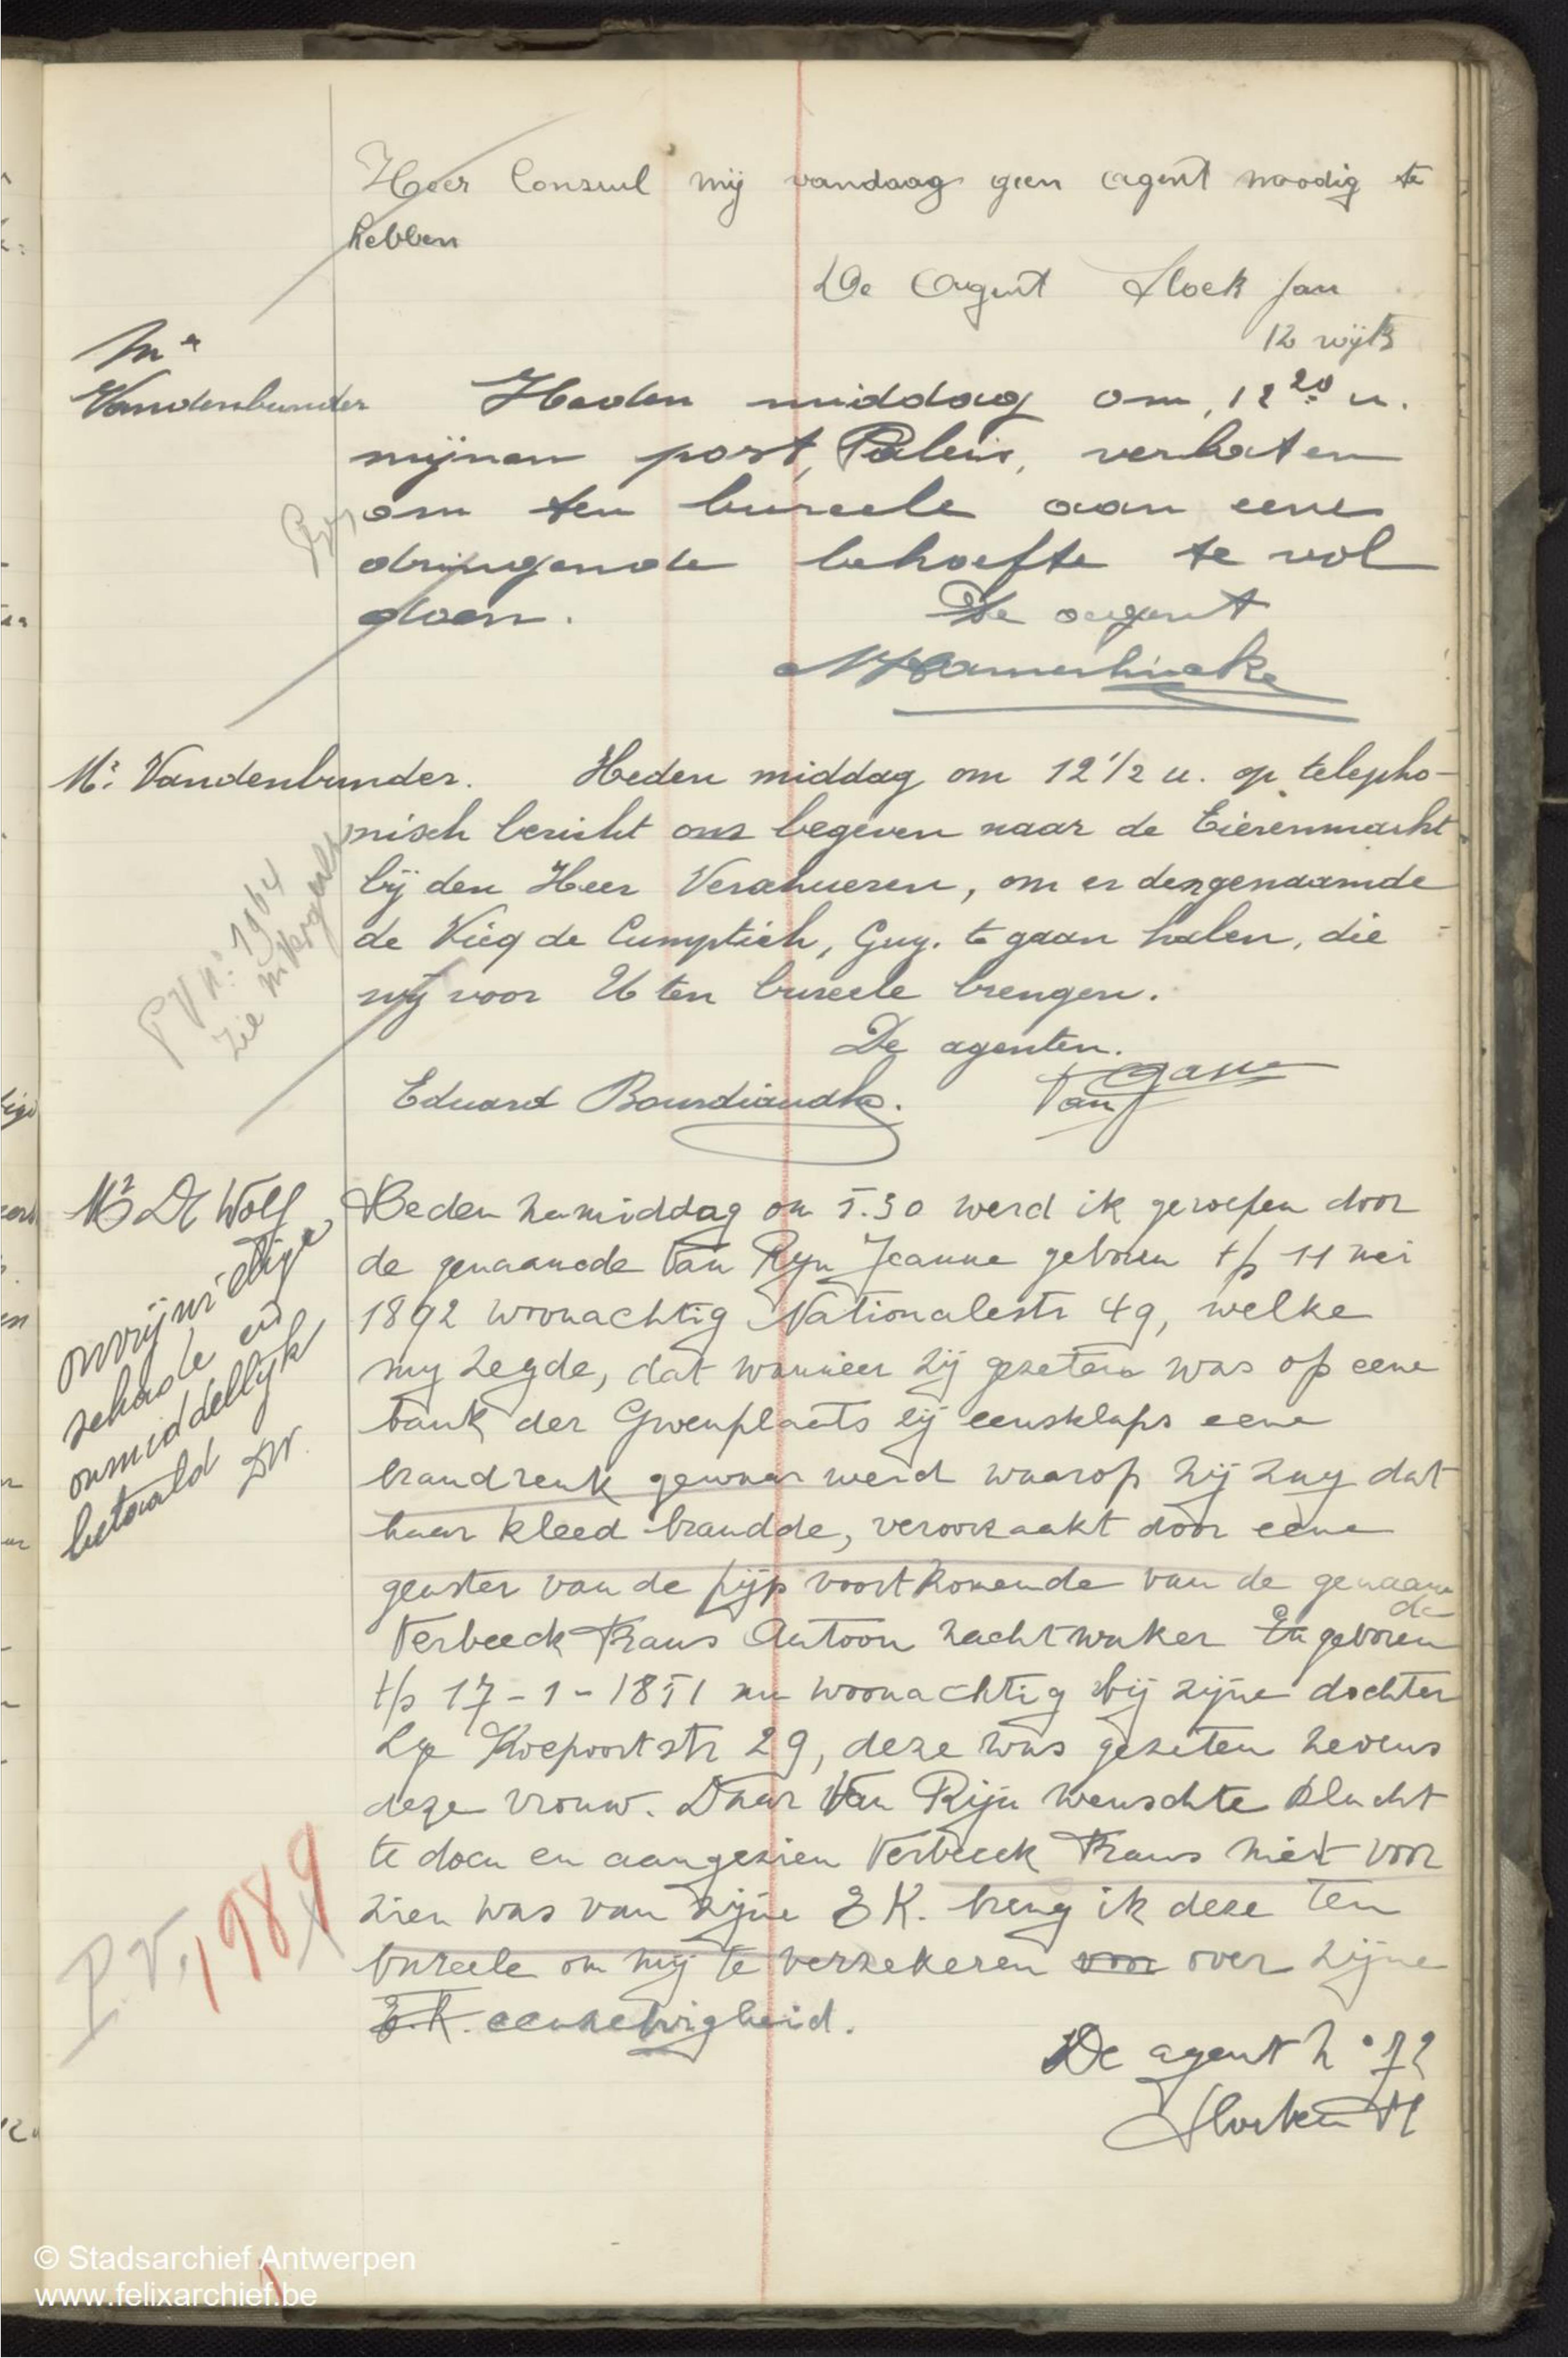 Heer Consul mij vandaag geen agent noodig te
hebben
De Agent Stock Jan
12 wijk
Mr
Vandenbunder
Heden middag om 12 20 u.
mijnen post, Paleis, verlaten
om ten bureele aan eene
dringende behoefte te vol
doen.
De agent
Mr Vandenbunder. Heden middag om 12 1/2 u. op telepho-
nisch bericht ons begeven naar de Eierenmarkt
bij den Heer Verahueren, om er dezgenaamde
de Viéq de Cumptich, Guy. te gaan halen, die
wij voor U ten bureele brengen.
P V n: 1964
Zie
De agenten.
Eduard
Van
Mr De Wolf
onvrijwillige
schade en
onmiddellijk
betaald DW.
Heden namiddag om 5.30 werd ik geroepen door
de genaamde Van Ryn Jeanne geboren t/s 11 mei
1892 woonachtig Nationalestr 49, welke
my zegde, dat wanneer zij gezeten was op eene
bank der Groenplaats zij eensklaps eene
brandreuk gewaar werd waarop zij zag dat
haar kleed brandde, veroorzaakt door eene
genster van de pijp voortkomende van de genaam
de
Verbeeck Frans Antoon nachtwaker En geboren
t/s 17-1-1851 nu woonachtig bij zijne dochter
Lge Koepoortstr 29, deze was gezeten nevens
deze vrouw. Daar Van Rijn wenschte klacht
te doen en aangezien Verbeeck Frans niet voor
zien was van zijne E K. breng ik deze ten
bureele om mij te verzekeren voor over zijne
E.K. eenzelvigheid.
P.V. 1989
De agent n° 72
© Stadsarchief Antwerpen
www.felixarchief.be